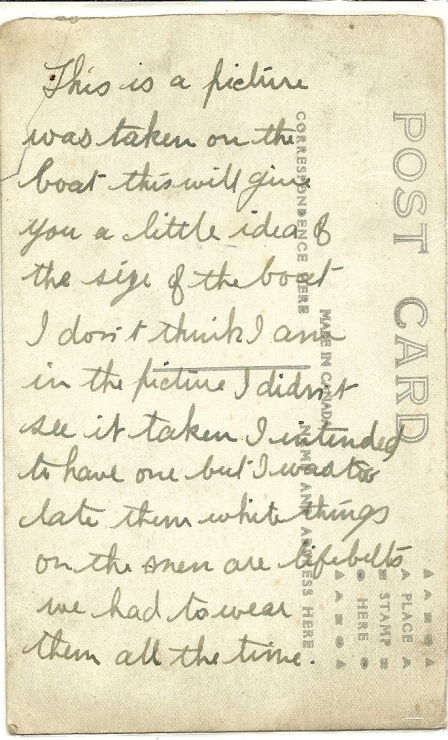 This is a picture
was taken on the
boat this will give
you a little idea of
the size of the boat
I don't think I am
in the picture I didn't
see it taken I intended
to have one but I was too
late them white things
on the men are lifebelts
we had to wear
them all the time.
POST CARD
CORRESPONDENCE HERE
MADE IN CANADA
NAME AND ADDRESS HERE
PLACE
STAMP
HERE